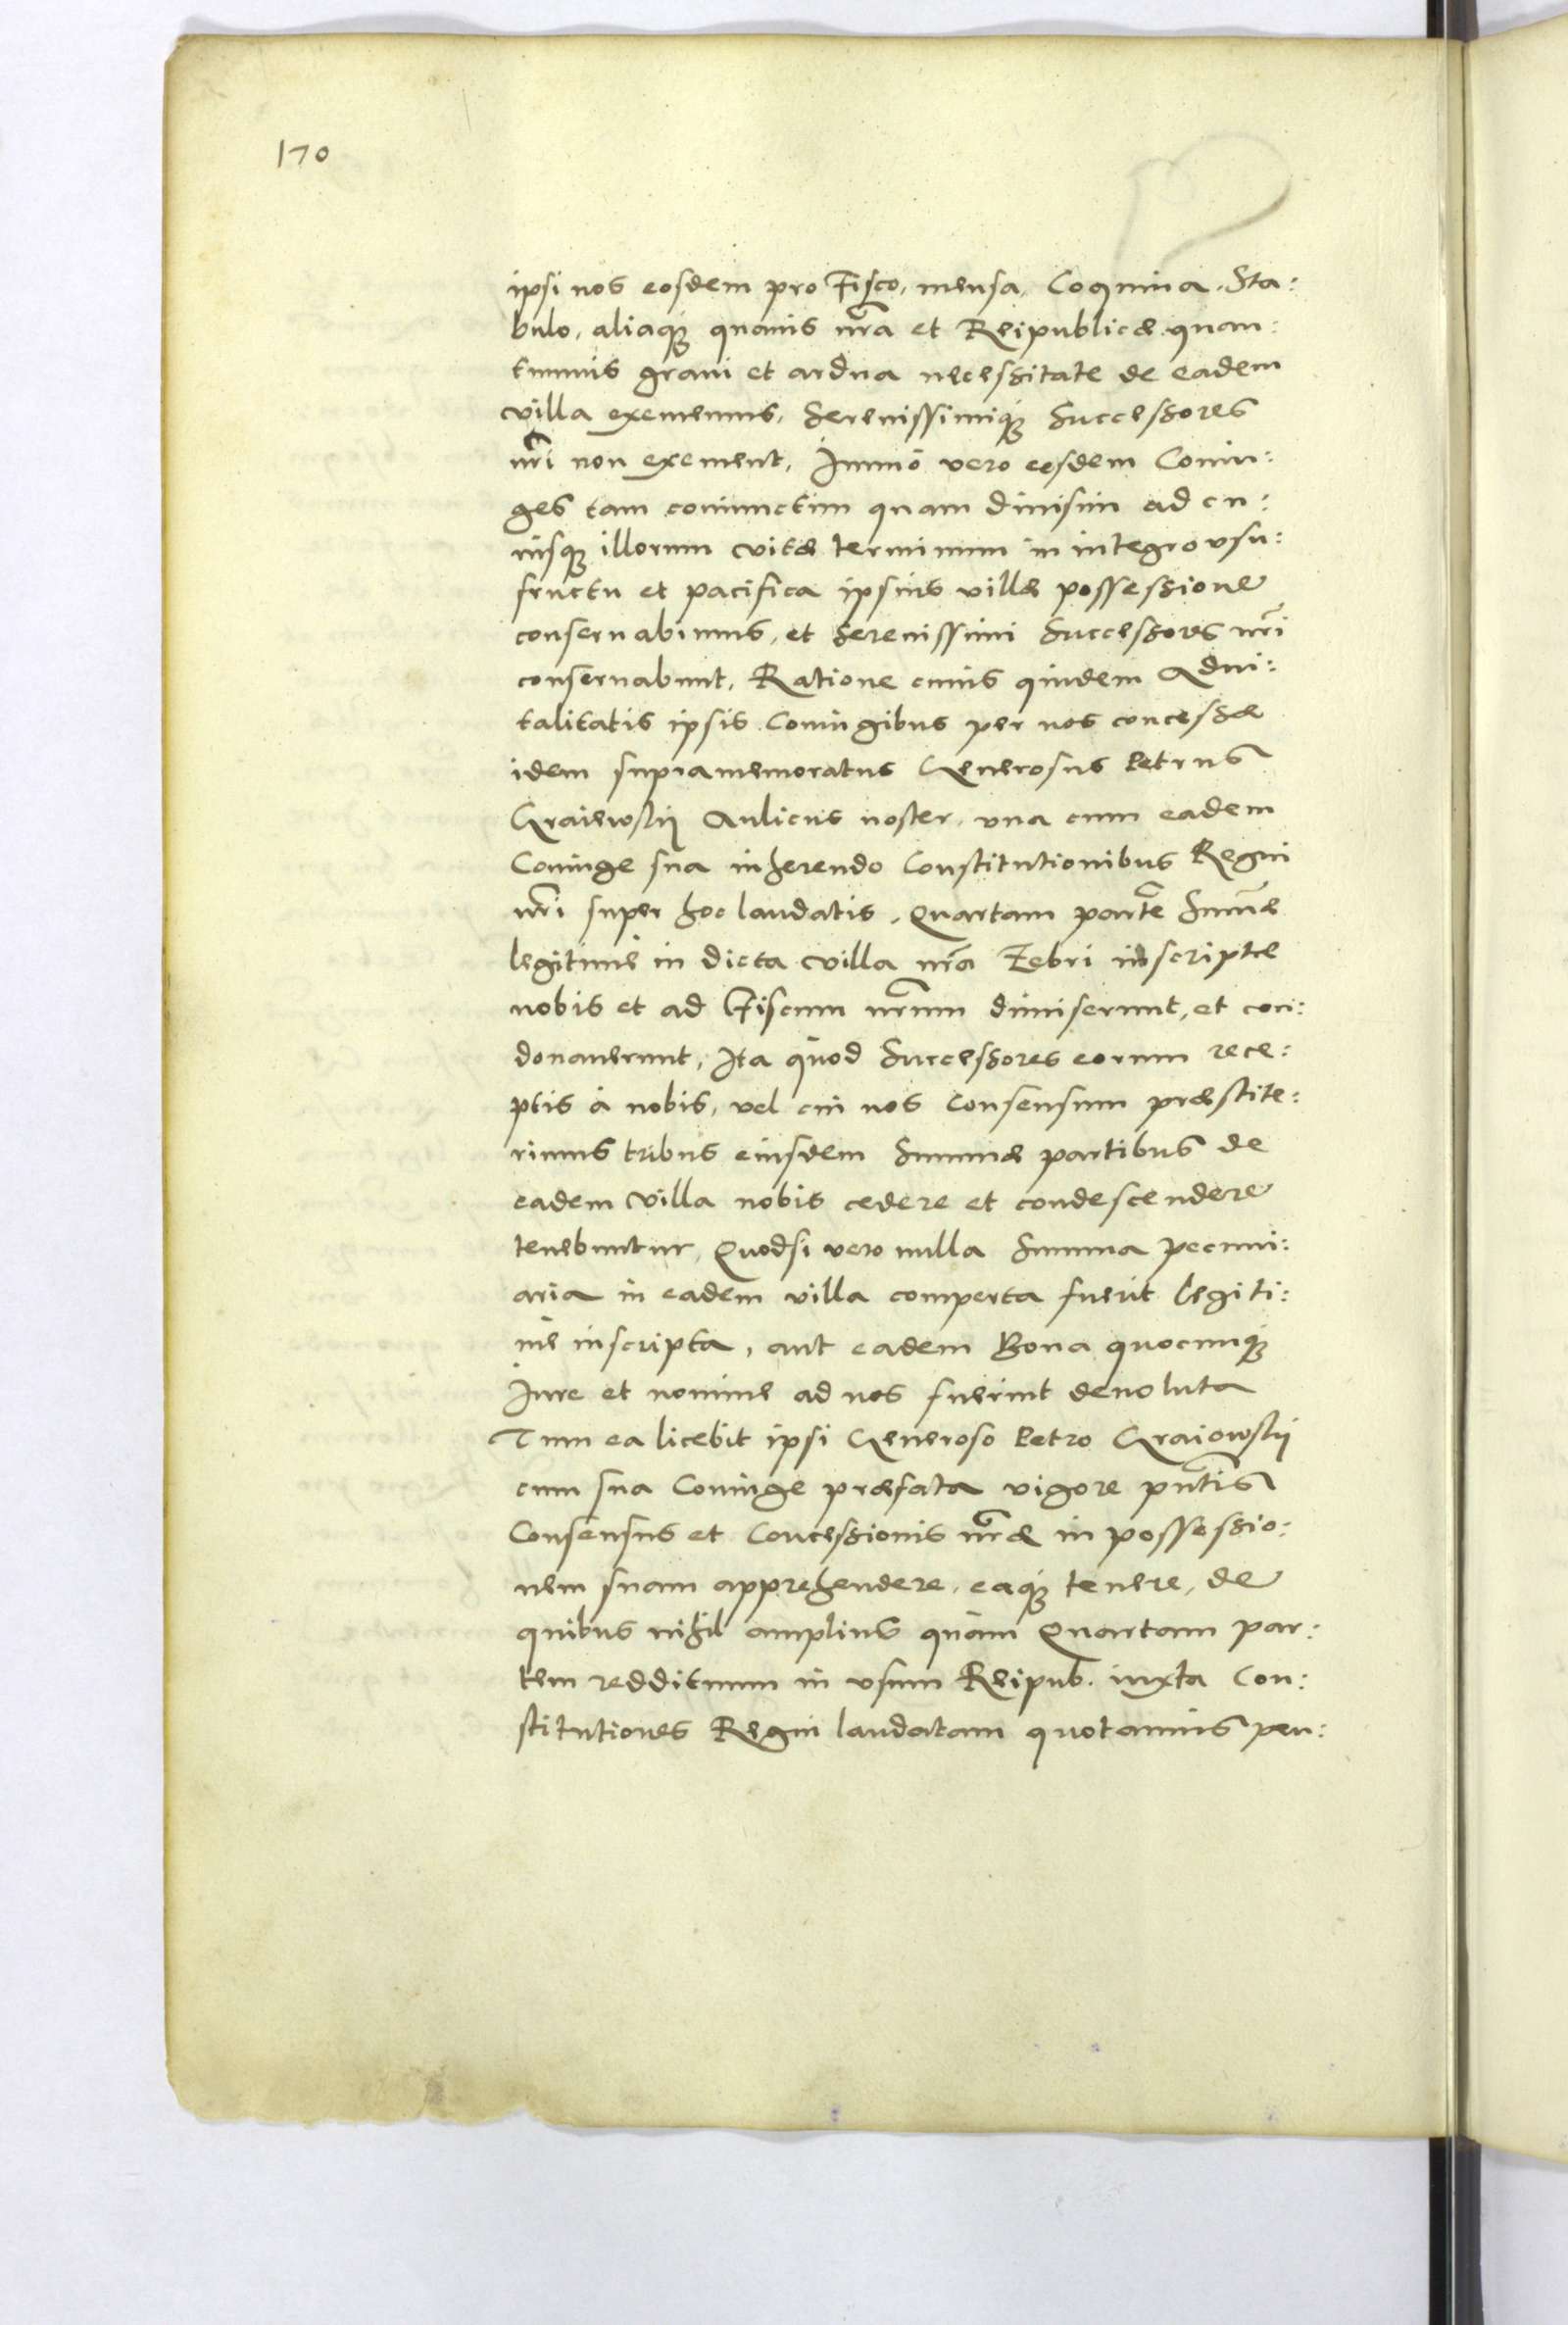 170
ipsi nos eosdem pro Fisco, mensa, Coquina, Sta:
bulo, aliaq3 quauis nr̃a et Reipublicæ quan:
tumuis graui et ardua necessitate de eadem
villa exememus, Serenissimiq3 Successores
nr̃i non exement, Immò vero eosdem Coniu:
ges tam coniunctim quam diuisim ad cu:
iusq3 illorum vitæ terminum in integro vsu:
fructu et pacifica ipsius villæ possessione
conseruabimus, et Serenissimi Successores nr̃i
conseruabunt, Ratione cuius quidem Adui:
talitatis ipsis Coniugibus per nos concessæ
idem supramemoratus Generosus Petrus
Graiewskij Aulicus noster, vna cum eadem
Coniuge sua inherendo Constitutionibus Regni
nr̃i super hoc laudatis, Quartam partẽ Sum̃æ
legitime in dicta villa nr̃a Zebri inscriptæ
nobis et ad Fiscum nr̃um dimiserunt, et con:
donauerunt, Ita quod Successores eorum rece:
ptis à nobis, vel cui nos Consensum præstite:
rimus tribus eiusdem Summæ partibus de
eadem villa nobis cedere et condescendere
tenebuntur, Quodsi vero nulla Summa pecuni:
aria in eadem villa comperta fuerit legiti:
me inscripta, aut eadem Bona quocunq3
Iure et nomine ad nos fuerint deuoluta
Tum ea licebit ipsi Generoso Petro Graiowskij
cum sua Coniuge præfata vigore pn̄tis
Consensus et Concessionis nr̃æ in possessio:
nem suam apprehendere, eaq3 tenere, de
quibus nihil amplius quàm Quartam par:
tem reddituum in vsum Reipub. iuxta Con:
stitutiones Regni laudatam quotannis pen: